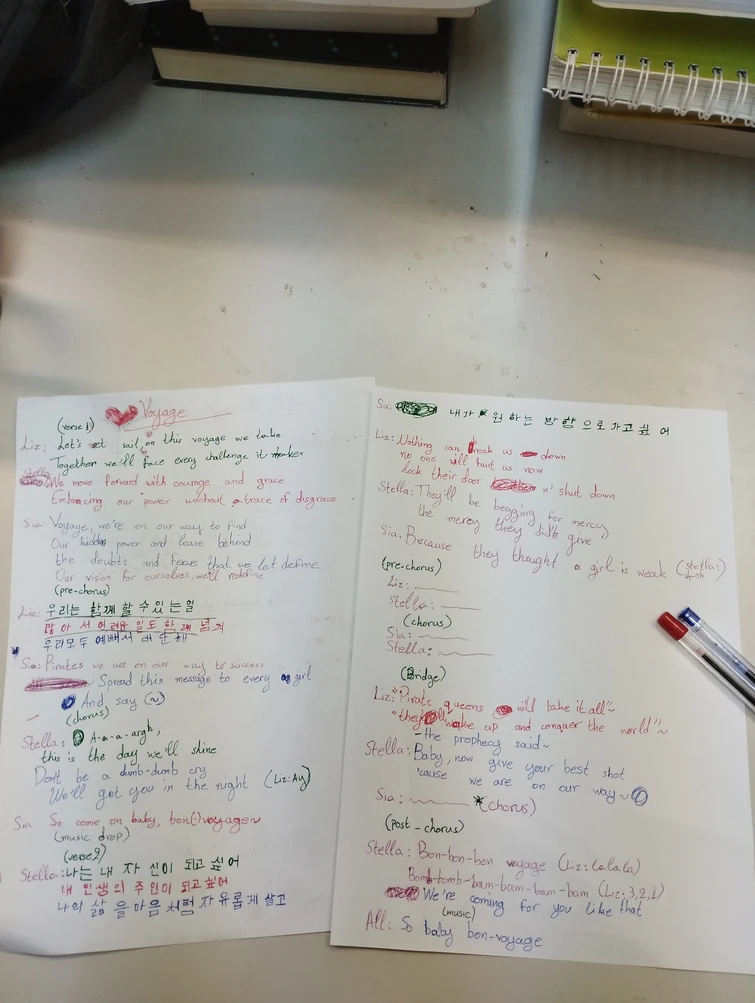 Voyage
(verse 1)
Liz: Let's set sail, on this voyage we take
Together we'll face every challenge it makes
Stella: We move forward with courage and grace
Embracing our power without a trace of disgrace
Sia: Voyage, we're on our way to find
Our hidden power and leave behind
the doubts and fears that we let define
Our vision for ourselves, we'll redefine
(pre-chorus)
Liz: 우리는 함께 할 수 있는 일
많아서 어려운 일도 함께 넘겨
우리모두 예뻐서 대단해
Sia: Pirates we are on our way to success
Spread this message to every girl
And say (~)
(chorus)
Stella: A-a-a-argh,
this is the day we'll shine
Don't be a dumb-dumb cry
We'll got you in the night (Liz: Ay)
Sia: So come on baby, bon(-)voyage~
(music drop)
(verse 2)
Stella: 나는 내 자신이 되고 싶어
내 인생의 주인이 되고 싶어
나의 삶을 마음처럼 자유롭게 살고
Sia: 내가 원하는 방향으로 가고 싶어
Liz: Nothing can break us down
no one will hurt us now
lock their door n' shut down
Stella: They'll be begging for mercy
the mercy they didn't give
Sia: Because they thought a girl is weak (Stella:
(pre-chorus)
Liz:
Stella:
(chorus)
Sia:
Stella:
(Bridge)
Liz: "Pirate queens will take it all"~
"they'll wake up and conquer the world"~
- the prophecy said~
Stella: Baby, now give your best shot
'cause we are on our way~
Sia: (chorus)
(post-chorus)
Stella: Bon-bon-bon voyage (Liz: lalala)
Bomb-bomb-bam-bam-bam-bam (Liz: 3,2,1)
We're coming for you like that
(music)
All: So baby bon-voyage